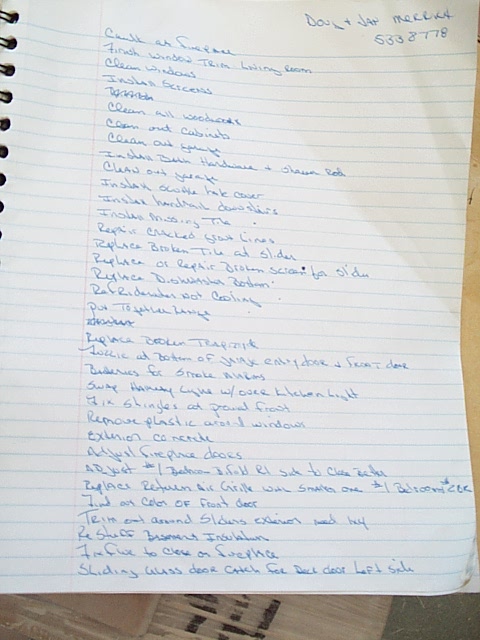 Doug + Jan Merrick
5338778
Caulk at fireplace
Finish window Trim Living Room
Clean windows
Install Screens
Clean all woodwork
Clean out Cabinets
Clean out garage
Install Bath Hardware + Shower Rod
Clean out garage
Install scuttle hole cover
Install handrail downstairs
Install Missing Tile
Repair cracked grout Lines
Replace Broken Tile at Slider
Replace or Repair Broken screen for slider
Replace Dishwasher Bottom
Refridgerator Not Cooling
put Together Range
Replace Broken
at Bottom of garage entry door + front door
Batteries for Smoke Alarms
Swap Hallway Light w/over kitchen light
Fix Shingles at front
Remove plastic around windows
Exterior concrete
Adjust fireplace doors
Adjust #1 Bedroom Bifold Rt side to Close Better
Replace Return Air Grille with Smaller one #1 Bedroom
Find out Color of Front door
Trim out around Sliders exterior
Re Stuff Basement Insulation
to Close on fireplace
Sliding Glass door Catch for Deck door Left Side